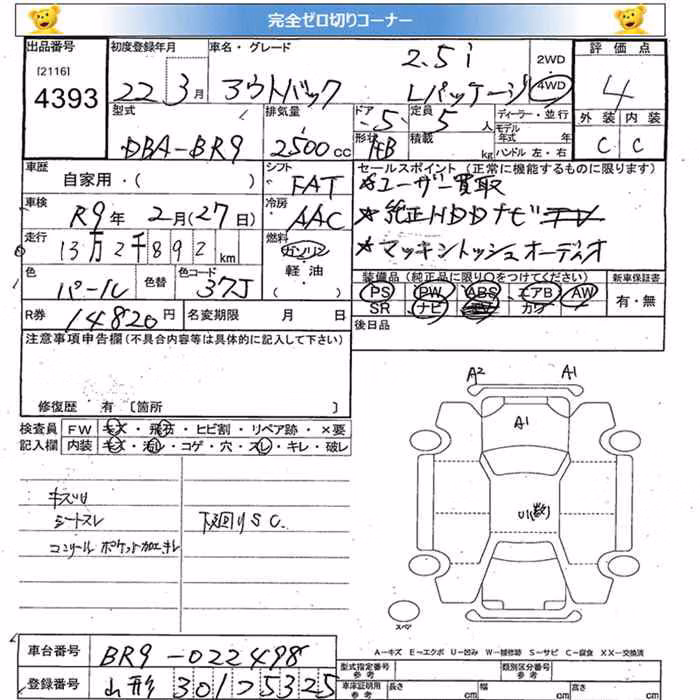 完全ゼロ切りコーナー
出品番号
[2116]
4393
初度登録年月
22 3月
車名・グレード
アウトバック 2.5i Lパッケージ
2WD
4WD
評価点
4
外装 内装
C C
型式
DBA-BR9
排気量
2500cc
ドア 5
形状 HB
定員 5人
積載 kg
ディーラー・並行
モデル年式 年
ハンドル 左・右
車歴
自家用・( )
シフト
FAT
車検
R9年2月(27日)
冷房
AAC
走行
13万2千892km
燃料
ガソリン
軽油
( )
色
パール
色替
色コード
37J
R券 14820円
名変期限 月 日
セールスポイント(正常に機能するものに限ります)
★ユーザー買取
★純正HDDナビ
★マッキントッシュオーディオ
装備品(純正品に限り○をつけてください)
PS PW ABS エアB AW
SR ナビ カワ
新車保証書
有・無
後日品
注意事項申告欄(不具合内容等は具体的に記入して下さい)
修復歴 有 〔箇所 〕
検査員記入欄
FW キズ・飛石・ヒビ割・リペア跡・×要
内装 キズ・汚レ・コゲ・穴・スレ・キレ・破レ
シートスレ
下回りSC.
A2
A1
A1
スペア
A-キズ E-エクボ U-凹み W-補修跡 S-サビ C-腐食 XX-交換済
車台番号
BR9-022498
登録番号
山形 301 つ 5325
型式指定番号
参考
類別区分番号
参考
車庫証明用
参考
長さ cm
幅 cm
高さ cm